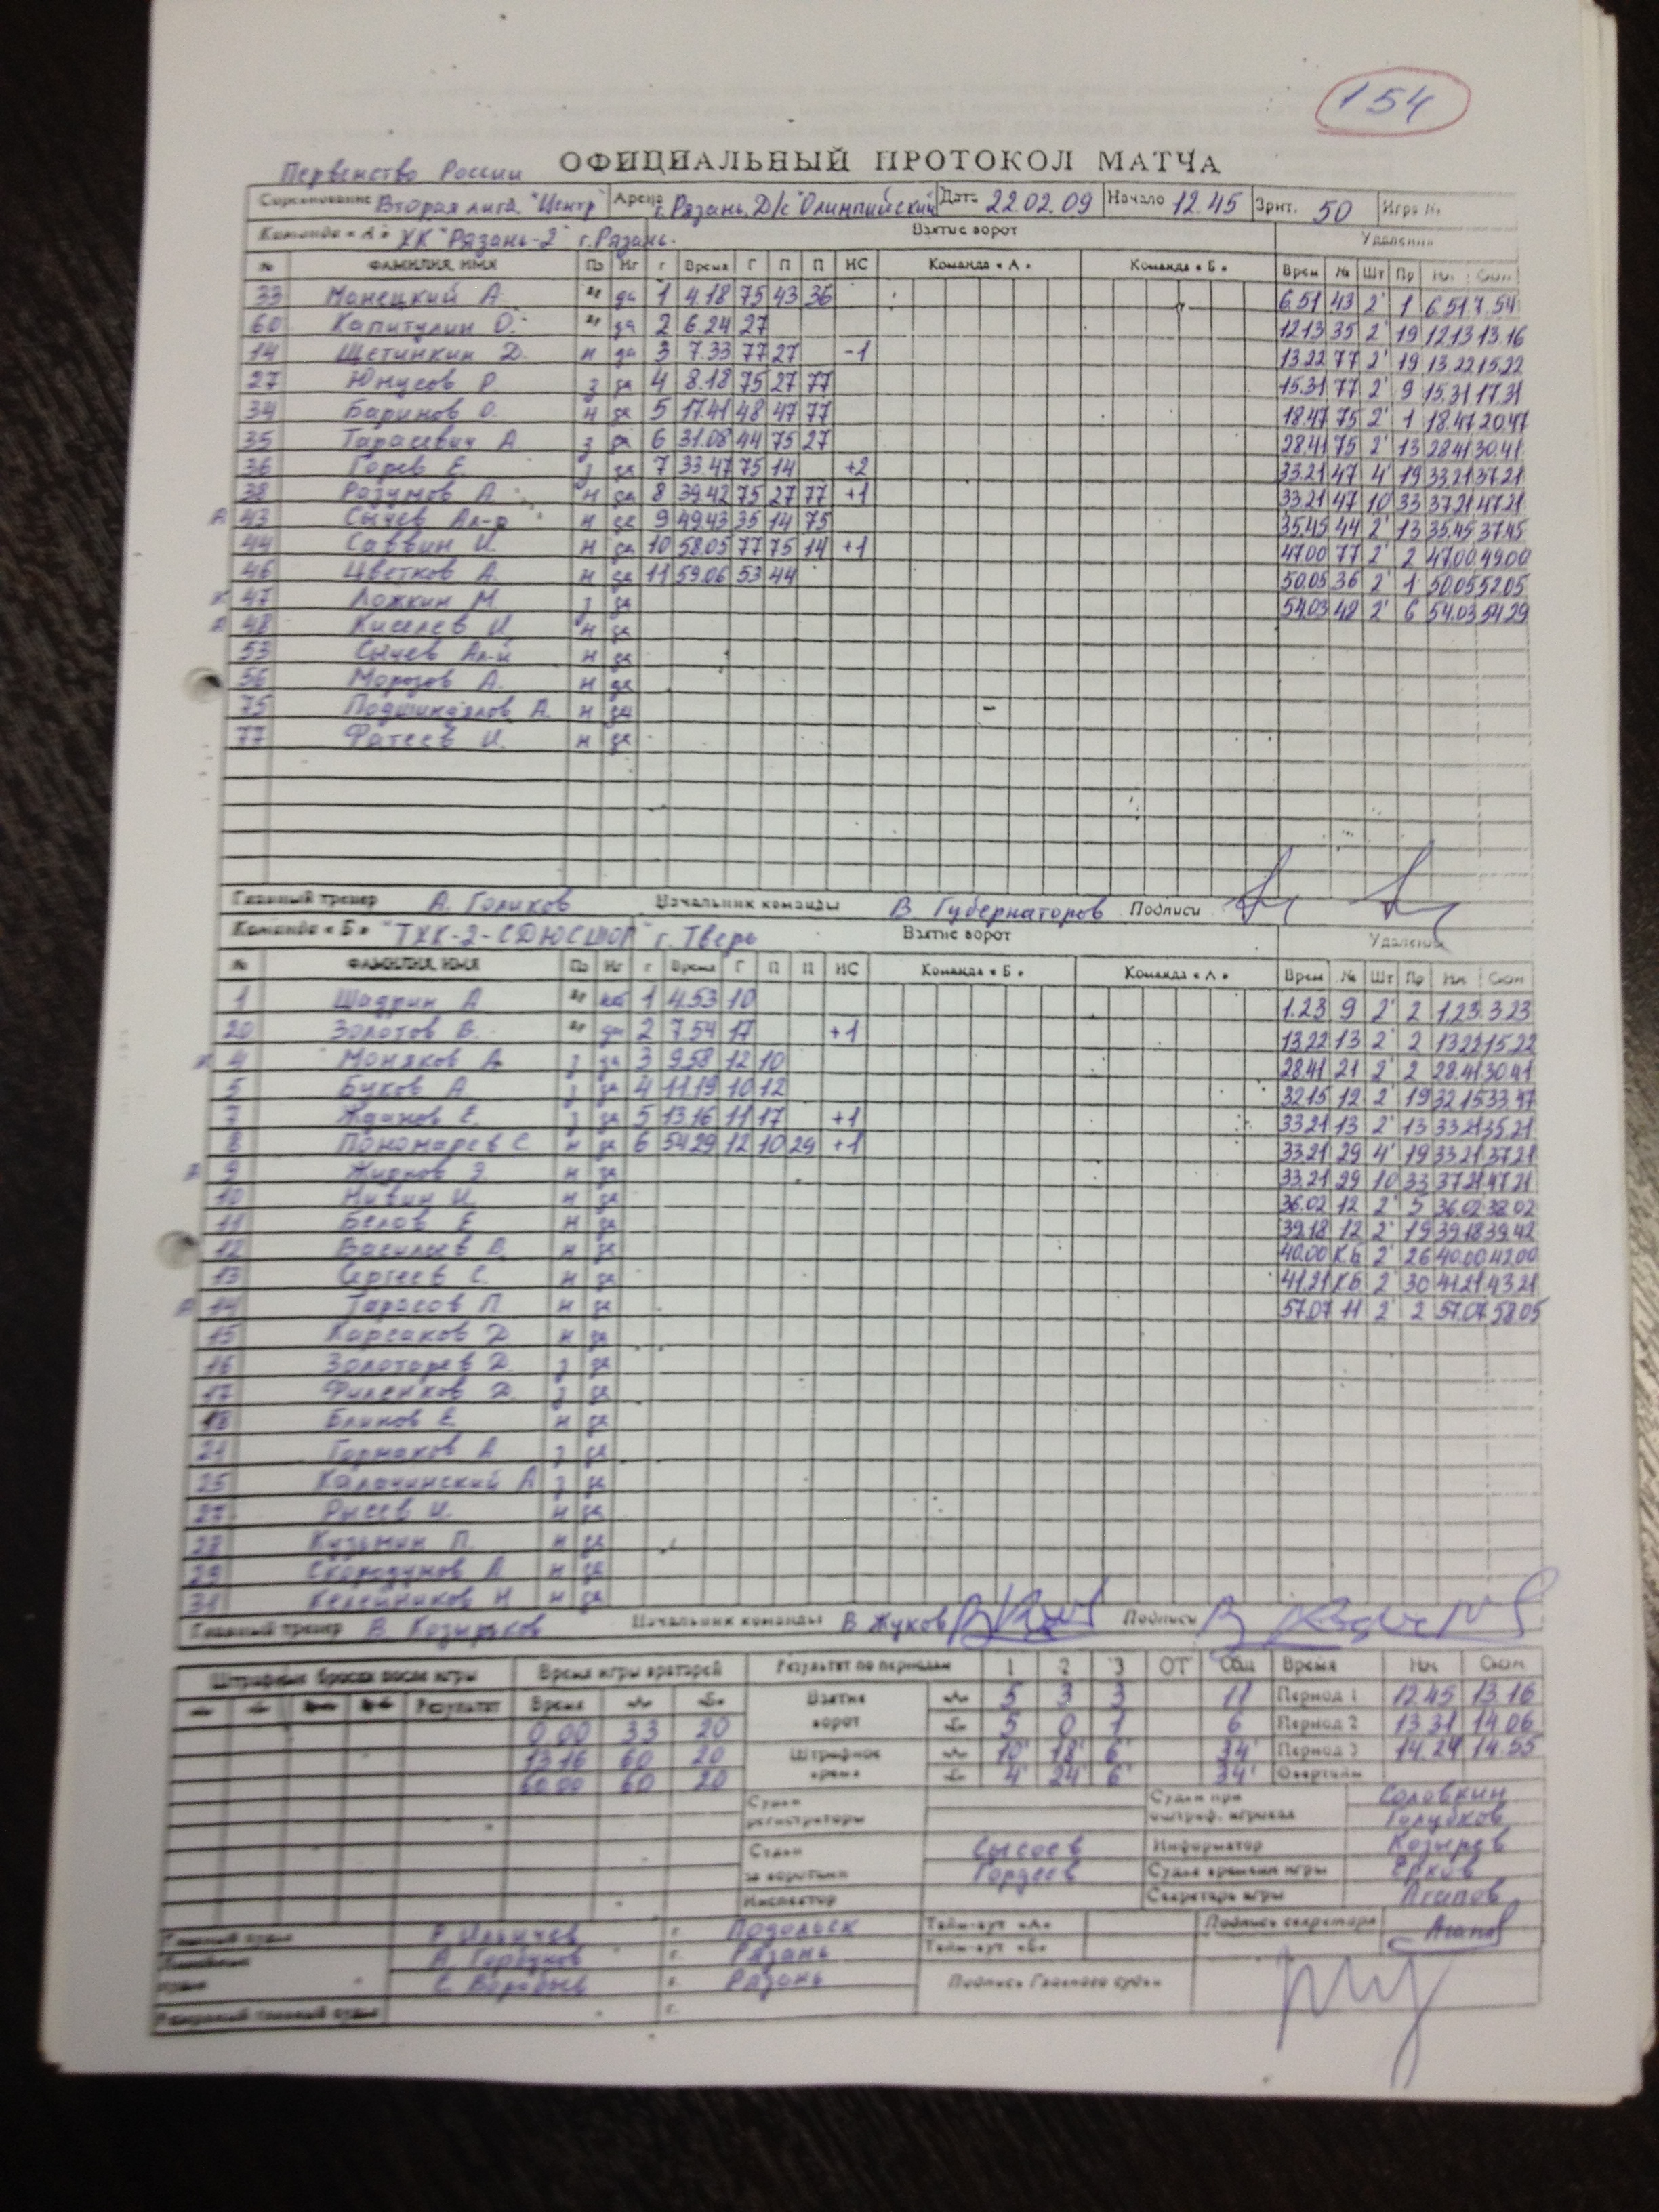 154
ОФИЦИАЛЬНЫЙ ПРОТОКОЛ МАТЧА
Первенство России
Соревнование Вторая лига "Центр" Арена г. Рязань, Д/с "Олимпийский" Дата 22.02.09 Начало 12.45 Зрит. 50 Игра №
Команда «А» ХК "Рязань-2" г. Рязань. Взятие ворот Удаления
№ ФАМИЛИЯ, ИМЯ Пз Иг г Время Г П П ИС Команда «А» Команда «Б» Врем № Шт Пр Нч Окон
33 Манецкий А. да 1 4.18 75 43 36 6.51 43 2' 1 6.51 7.54
60 Капитулин О. да 2 6.24 27 12.13 35 2' 19 12.13 13.16
14 Щетинкин Д. н да 3 7.33 77 27 -1 13.22 77 2' 19 13.22 15.22
27 Юнусов Р. з да 4 8.18 75 27 77 15.31 77 2' 9 15.31 17.31
34 Баринов О. н да 5 17.41 48 47 77 18.47 75 2' 1 18.47 20.47
35 Тарасевич А з да 6 31.08 44 75 27 28.41 75 2' 13 28.41 30.41
36 Горев Е. з да 7 33.47 75 14 +2 33.21 47 4' 19 33.21 37.21
38 Разумов А. н да 8 39.42 75 27 77 +1 33.21 47 10 33 37.21 47.21
А 43 Сычев Ал-р н да 9 49.43 35 14 75 35.45 44 2' 13 35.45 37.45
44 Саввин И. н да 10 58.05 77 75 14 +1 47.00 77 2' 2 47.00 49.00
46 Цветков А. н да 11 59.06 53 44 50.05 36 2' 1 50.05 52.05
К 47 Ложкин М. з да 54.03 48 2' 6 54.03 54.29
А 48 Киселев И н да
53 Сычев Ал-й н да
56 Морозов А. н да
75 Подшивалов А. н да
77 Фатеев И. н да
Главный тренер А. Голиков Начальник команды В. Губернаторов Подписи
Команда «Б» "ТХК-2-СДЮСШОР" г. Тверь Взятие ворот Удалений
№ ФАМИЛИЯ, ИМЯ Пз Иг г Время Г П П ИС Команда «Б» Команда «А» Врем № Шт Пр Нч Окон
1 Шадрин А 1 4.53 10 1.23 9 2' 2 1.23 3.23
20 Золотов В. да 2 7.54 17 +1 13.22 13 2' 2 13.22 15.22
К 4 Моняков А з да 3 9.58 12 10 28.41 21 2' 2 28.41 30.41
5 Буков А з да 4 11.19 10 12 32.15 12 2' 19 32.15 33.47
7 Жданов Е. з да 5 13.16 11 17 +1 33.21 13 2' 13 33.21 35.21
8 Пономарев С. н да 6 54.29 12 10 29 +1 33.21 29 4' 19 33.21 37.21
А 9 Жидков Э. н да 33.21 29 10 33 37.21 47.21
10 Нивин И. н да 36.02 12 2' 5 36.02 38.02
11 Белов Е н да 39.18 12 2' 19 39.18 39.42
12 Васильев В. н да 40.00 К.Б 2' 26 40.00 42.00
13 Сергеев С. н да 41.21 К.Б 2' 30 41.21 43.21
А 14 Тарасов П н да 57.07 11 2' 2 57.07 58.05
15 Карсаков Д н да
16 Золотарев Д. з да
17 Филенков Д. з да
18 Блинов Е. н да
21 Горшаков А з да
25 Калачинский А з да
27 Рысев И. н да
28 Кузьмин П. н да
29 Скородумов А н да
31 Келейников Н н да
Главный тренер В. Козырьков Начальник команды В. Жуков Подписи
Штрафные броски после игры Время игры вратарей Результат по периодам 1 2 3 ОТ Общ Время Нч Окон
Результат Время «А» «Б» Взятие ворот «А» 5 3 3 11 Период 1 12.45 13.16
0.00 33 20 «Б» 5 0 1 6 Период 2 13.31 14.06
13.16 60 20 Штрафное время «А» 10' 18' 6' 34' Период 3 14.24 14.55
60.00 60 20 «Б» 4' 24' 6' 34' Овертайм
Судьи регистраторы Судьи при оштраф. игроках Соловкин
Голубков
Судьи за воротами Сысоев Информатор Козырев
Гордеев Судья времени игры Ерхов
Инспектор Секретарь игры Агапов
Главный судья Р. Ильичев г. Подольск Тайм-аут «А» Подпись секретаря Агапов
Линейные судьи А. Горбунов г. Рязань Тайм-аут «Б»
С. Воробьев г. Рязань Подпись Главного судьи
Резервный главный судья г.